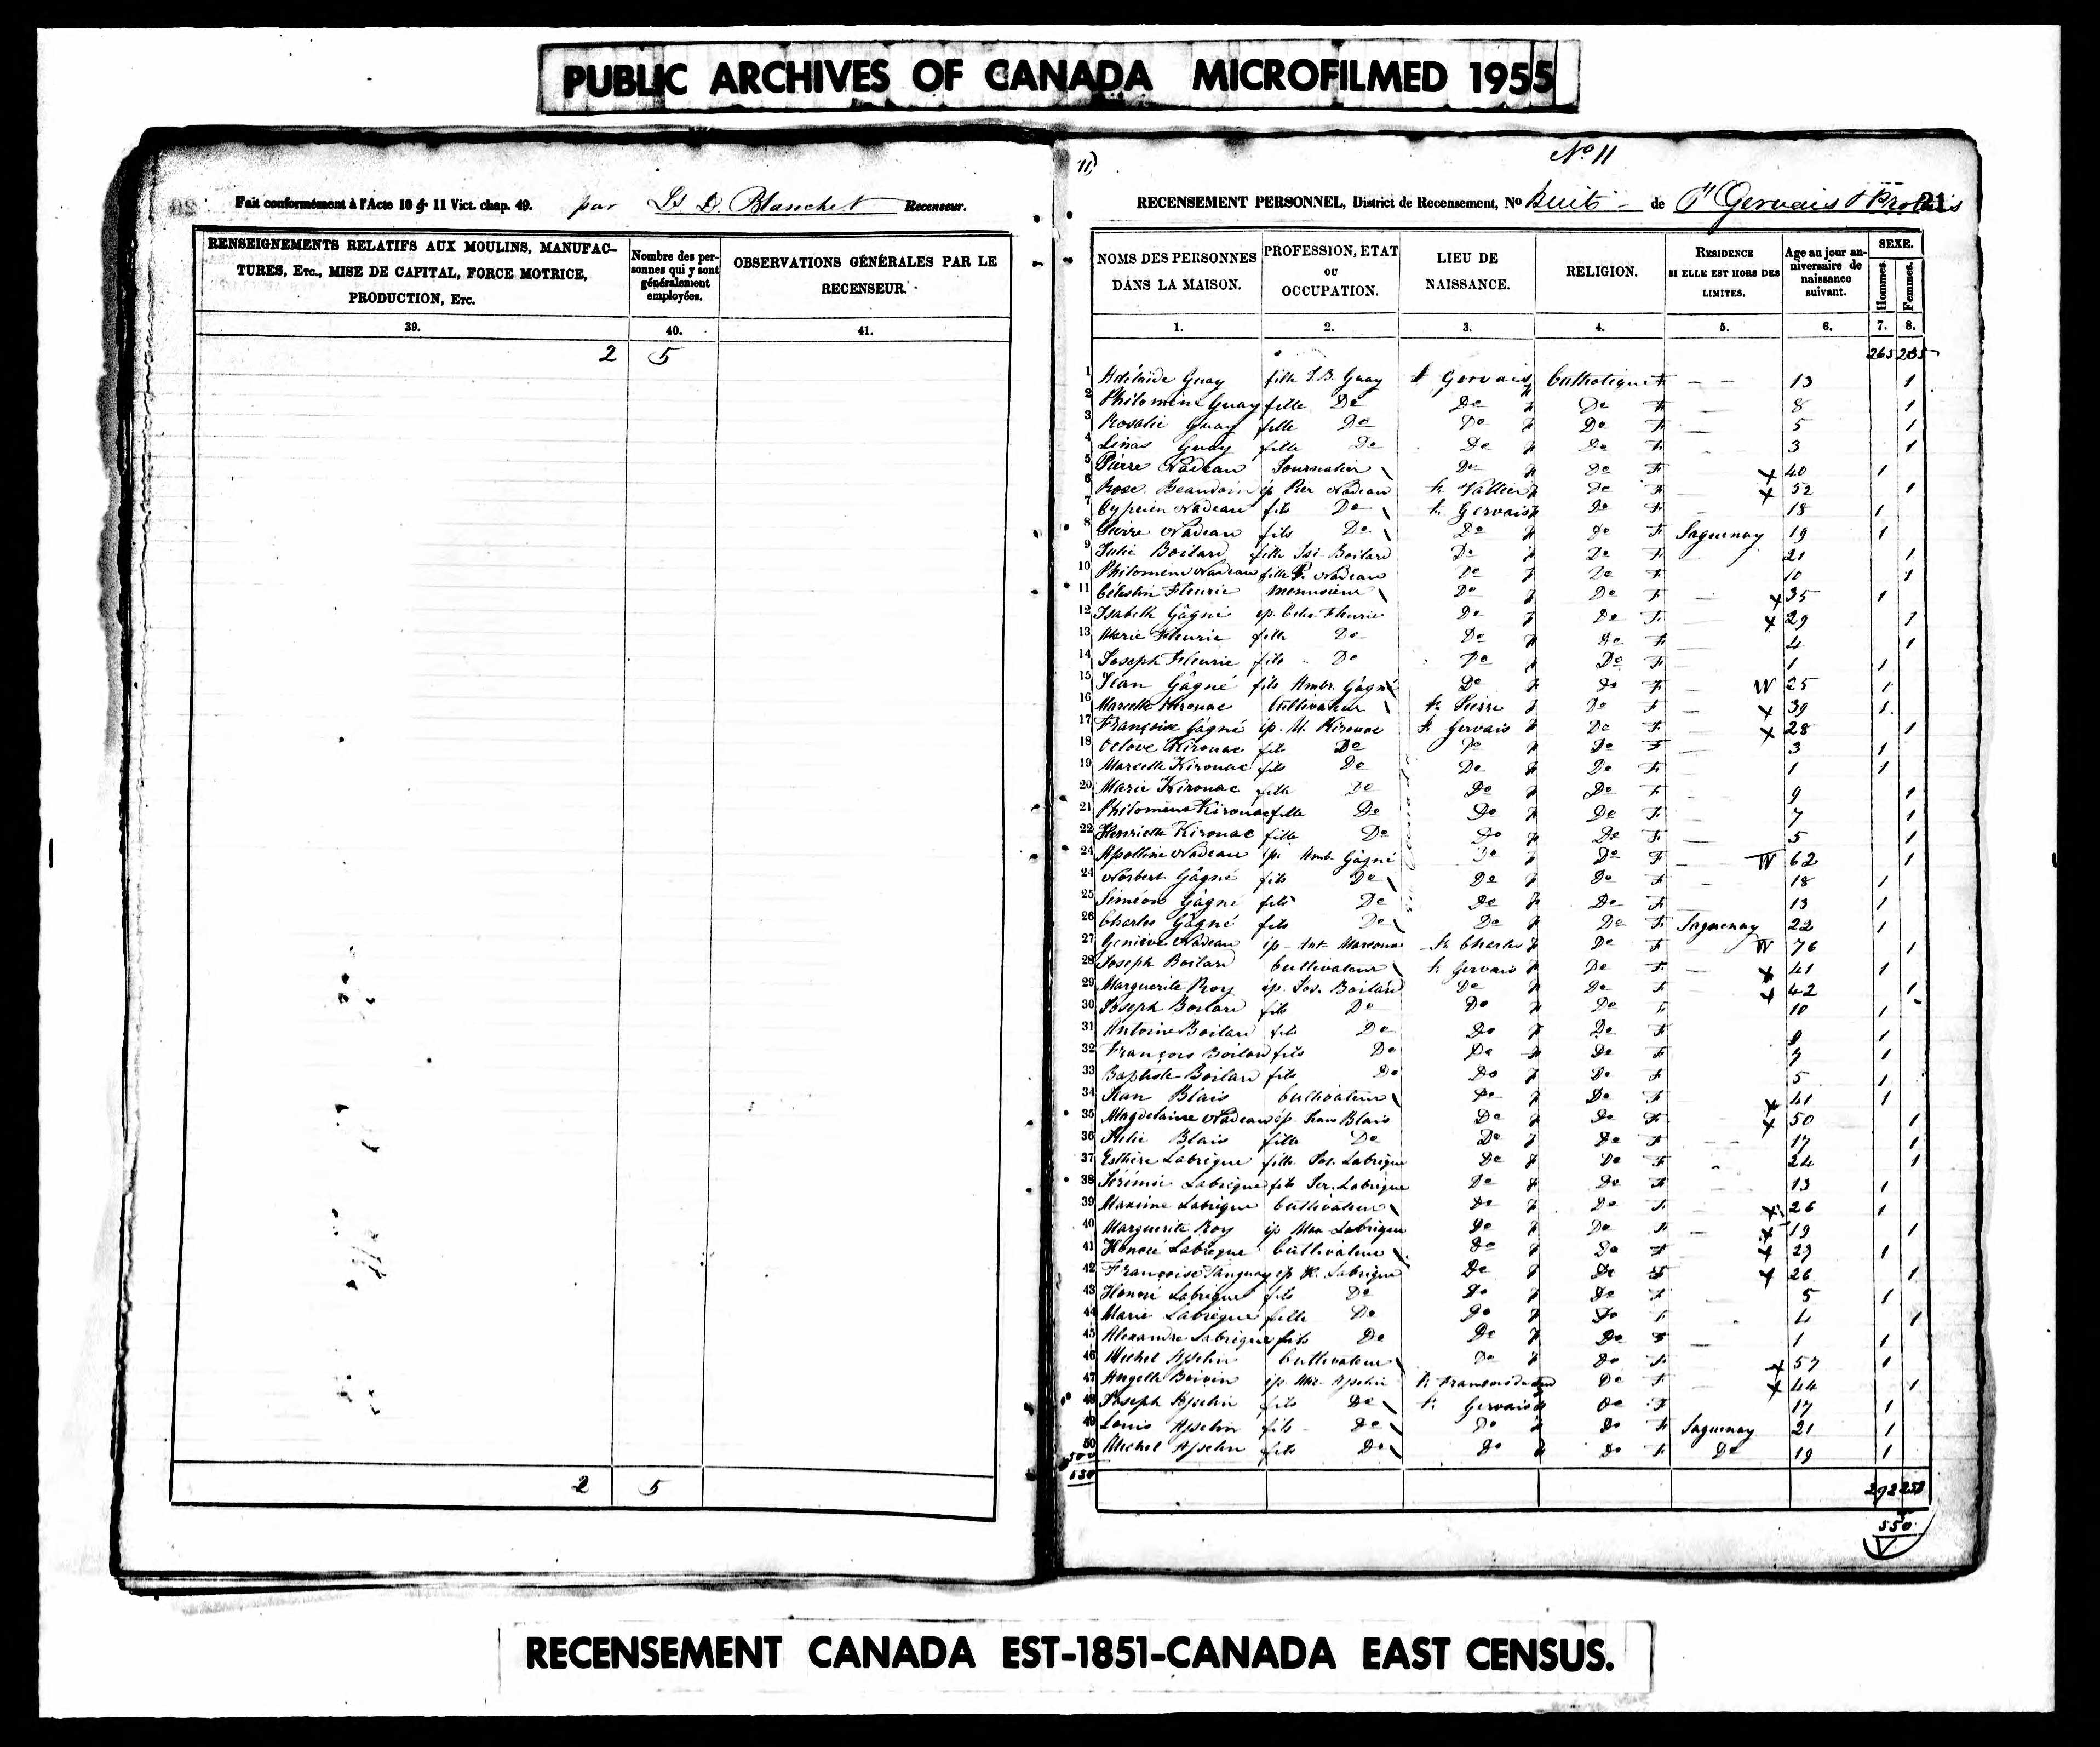 PUBLIC ARCHIVES OF CANADA MICROFILMED 1955
Fait conformément à l'Acte 10 & 11 Vict. chap. 49. par Ls D. Blanchet Recenseur.
RENSEIGNEMENTS RELATIFS AUX MOULINS, MANUFAC-
TURES, Etc., MISE DE CAPITAL, FORCE MOTRICE,
PRODUCTION, Etc.
Nombre des per-
sonnes qui y sont
généralement
employées.
OBSERVATIONS GÉNÉRALES PAR LE
RECENSEUR.
39. 40. 41.
2 5
2 5
11) No 11
RECENSEMENT PERSONNEL, District de Recensement, No de St Gervais & Protais
21
NOMS DES PERSONNES
DANS LA MAISON.
PROFESSION, ETAT
OU
OCCUPATION.
LIEU DE
NAISSANCE.
RELIGION.
RESIDENCE
SI ELLE EST HORS DES
LIMITES.
Age au jour an-
niversaire de
naissance
suivant.
SEXE.
Hommes. Femmes.
1. 2. 3. 4. 5. 6. 7. 8.
265
1 Adélaïde Guay fille J.B. Guay St Gervais Catholique F 13 1
2 Philomène Guay fille Do Do Do F 8 1
3 Rosalie Guay fille Do Do Do F 5 1
4 Guay fille Do Do Do F 3 1
5 Pierre Nadeau Journalier Do Do F x 40 1
6 Rose Beaudoin ép Pier Nadeau St Vallier Do F x 52 1
7 Cyprien Nadeau fils Do St Gervais Do F 18 1
8 Pierre Nadeau fils Do Do Do F Saguenay 19 1
9 Julie Boilard fille Boilard Do Do F 21 1
10 Philomène Nadeau fille P. Nadeau Do Do F 10 1
11 Célestin Fleurie Menuisier Do Do F x 35 1
12 Isabelle Gâgné ép. Fleurie Do Do F x 29 1
13 Marie Fleurie fille Do Do Do F 4 1
14 Joseph Fleurie fils Do Do Do F 1 1
15 Jean Gâgné fils Ambr. Gâgné Do Do F W 25 1
16 Marcelle Kirouac Cultivateur St Pierre Do F x 39 1
17 Françoise Gâgné ép. M. Kirouac St Gervais Do F x 28 1
18 Octave Kirouac fils Do Do Do F 3 1
19 Marcelle Kirouac fils Do Do Do F 1 1
20 Marie Kirouac fille Do Do Do F 9 1
21 Philomène Kirouac fille Do Do Do F 7 1
22 Henriette Kirouac fille Do Do Do F 5 1
24 Apolline Nadeau ép. Amb. Gâgné Do Do F W 62 1
24 Norbert Gâgné fils Do Do Do F 18 1
25 Siméon Gâgné fils Do Do Do F 13 1
26 Charles Gâgné fils Do Do Do F Saguenay 22 1
27 Nadeau ép. Ant. St Charles Do F W 76 1
28 Joseph Boilard Cultivateur St Gervais Do F x 41 1
29 Marguerite Roy ép. Jos. Boilard Do Do F x 42 1
30 Joseph Boilard fils Do Do Do F 10 1
31 Antoine Boilard fils Do Do Do F 1
32 François Boilard fils Do Do Do F 7 1
33 Baptiste Boilard fils Do Do Do F 5 1
34 Jean Blais Cultivateur Do Do F x 41 1
35 Magdelaine Nadeau ép. Jean Blais Do Do F x 50 1
36 Blais fille Do Do Do F 17 1
37 Esthère Labrèque fille Jos. Labrèque Do Do F 24 1
38 Jérémie Labrèque fils Labrèque Do Do F 13 1
39 Maxime Labrèque Cultivateur Do Do F x 26 1
40 Marguerite Roy ép Max Labrèque Do Do F x 19 1
41 Honoré Labrèque Cultivateur Do Do F x 29 1
42 Françoise Tanguay ép H. Labrèque Do Do F x 26 1
43 Honoré Labrèque fils Do Do Do F 5 1
44 Marie Labrèque fille Do Do Do F 4 1
45 Alexandre Labrèque fils Do Do Do F 1 1
46 Michel Asselin Cultivateur Do Do F x 57 1
47 Angelle Boivin ép Mic. Asselin Do F x 44 1
48 Joseph Asselin fils Do St Gervais Do F 17 1
49 Louis Asselin fils Do Do Do F Saguenay 21 1
50 Michel Asselin fils Do Do Do F Do 19 1
500
550
292 258
550
RECENSEMENT CANADA EST-1851-CANADA EAST CENSUS.